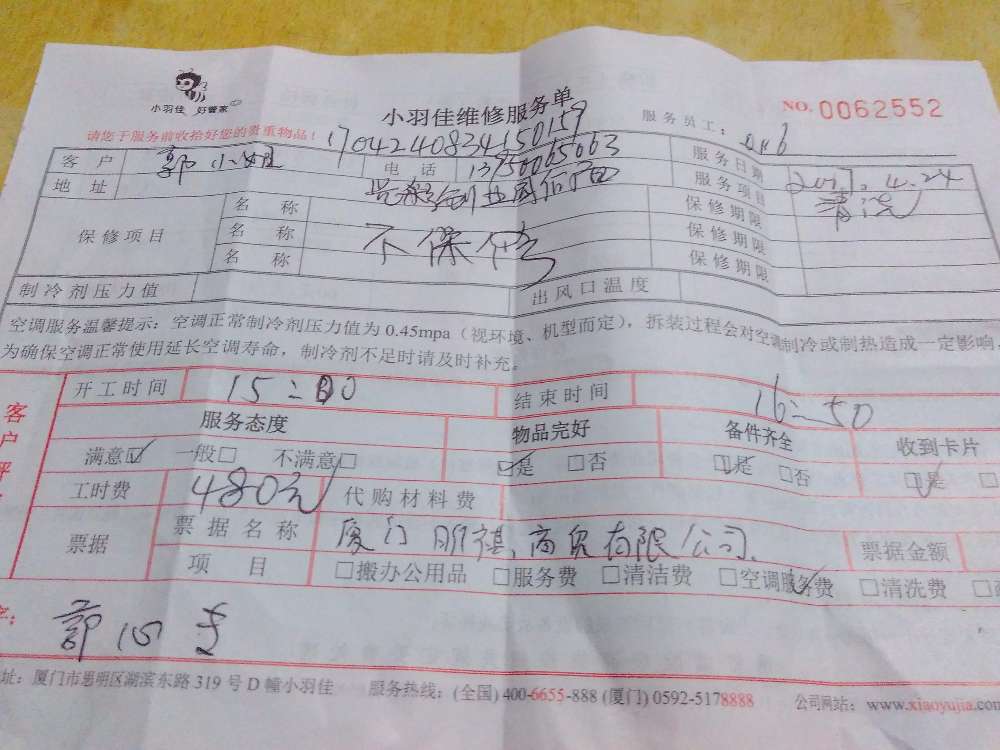 小羽佳 好管家
小羽佳维修服务单
NO. 0062552
请您于服务前收拾好您的贵重物品！
1704240834150159
服务员工：
客户 郭小姐 电话 13950065063 服务日期 2017.4.24
地址 服务项目 清洗
保修项目 名称 保修期限
名称 不保修 保修期限
名称 保修期限
制冷剂压力值 出风口温度
空调服务温馨提示：空调正常制冷剂压力值为0.45mpa（视环境、机型而定），拆装过程会对空调制冷或制热造成一定影响，
为确保空调正常使用延长空调寿命，制冷剂不足时请及时补充。
开工时间 15:00 结束时间 16:50
客户评
服务态度 物品完好 备件齐全 收到卡片
满意☑ 一般□ 不满意□ ☑是 □否 ☑是 □否 ☑是 □
工时费 480元 代购材料费
票据 票据名称 厦门 商贸有限公司. 票据金额
项目 □搬办公用品 □服务费 □清洁费 ☑空调服务费 □清洗费
字：
址：厦门市思明区湖滨东路 319 号 D 幢小羽佳 服务热线：(全国) 400-6655-888 (厦门) 0592-5178888 公司网站：www.xiaoyujia.com